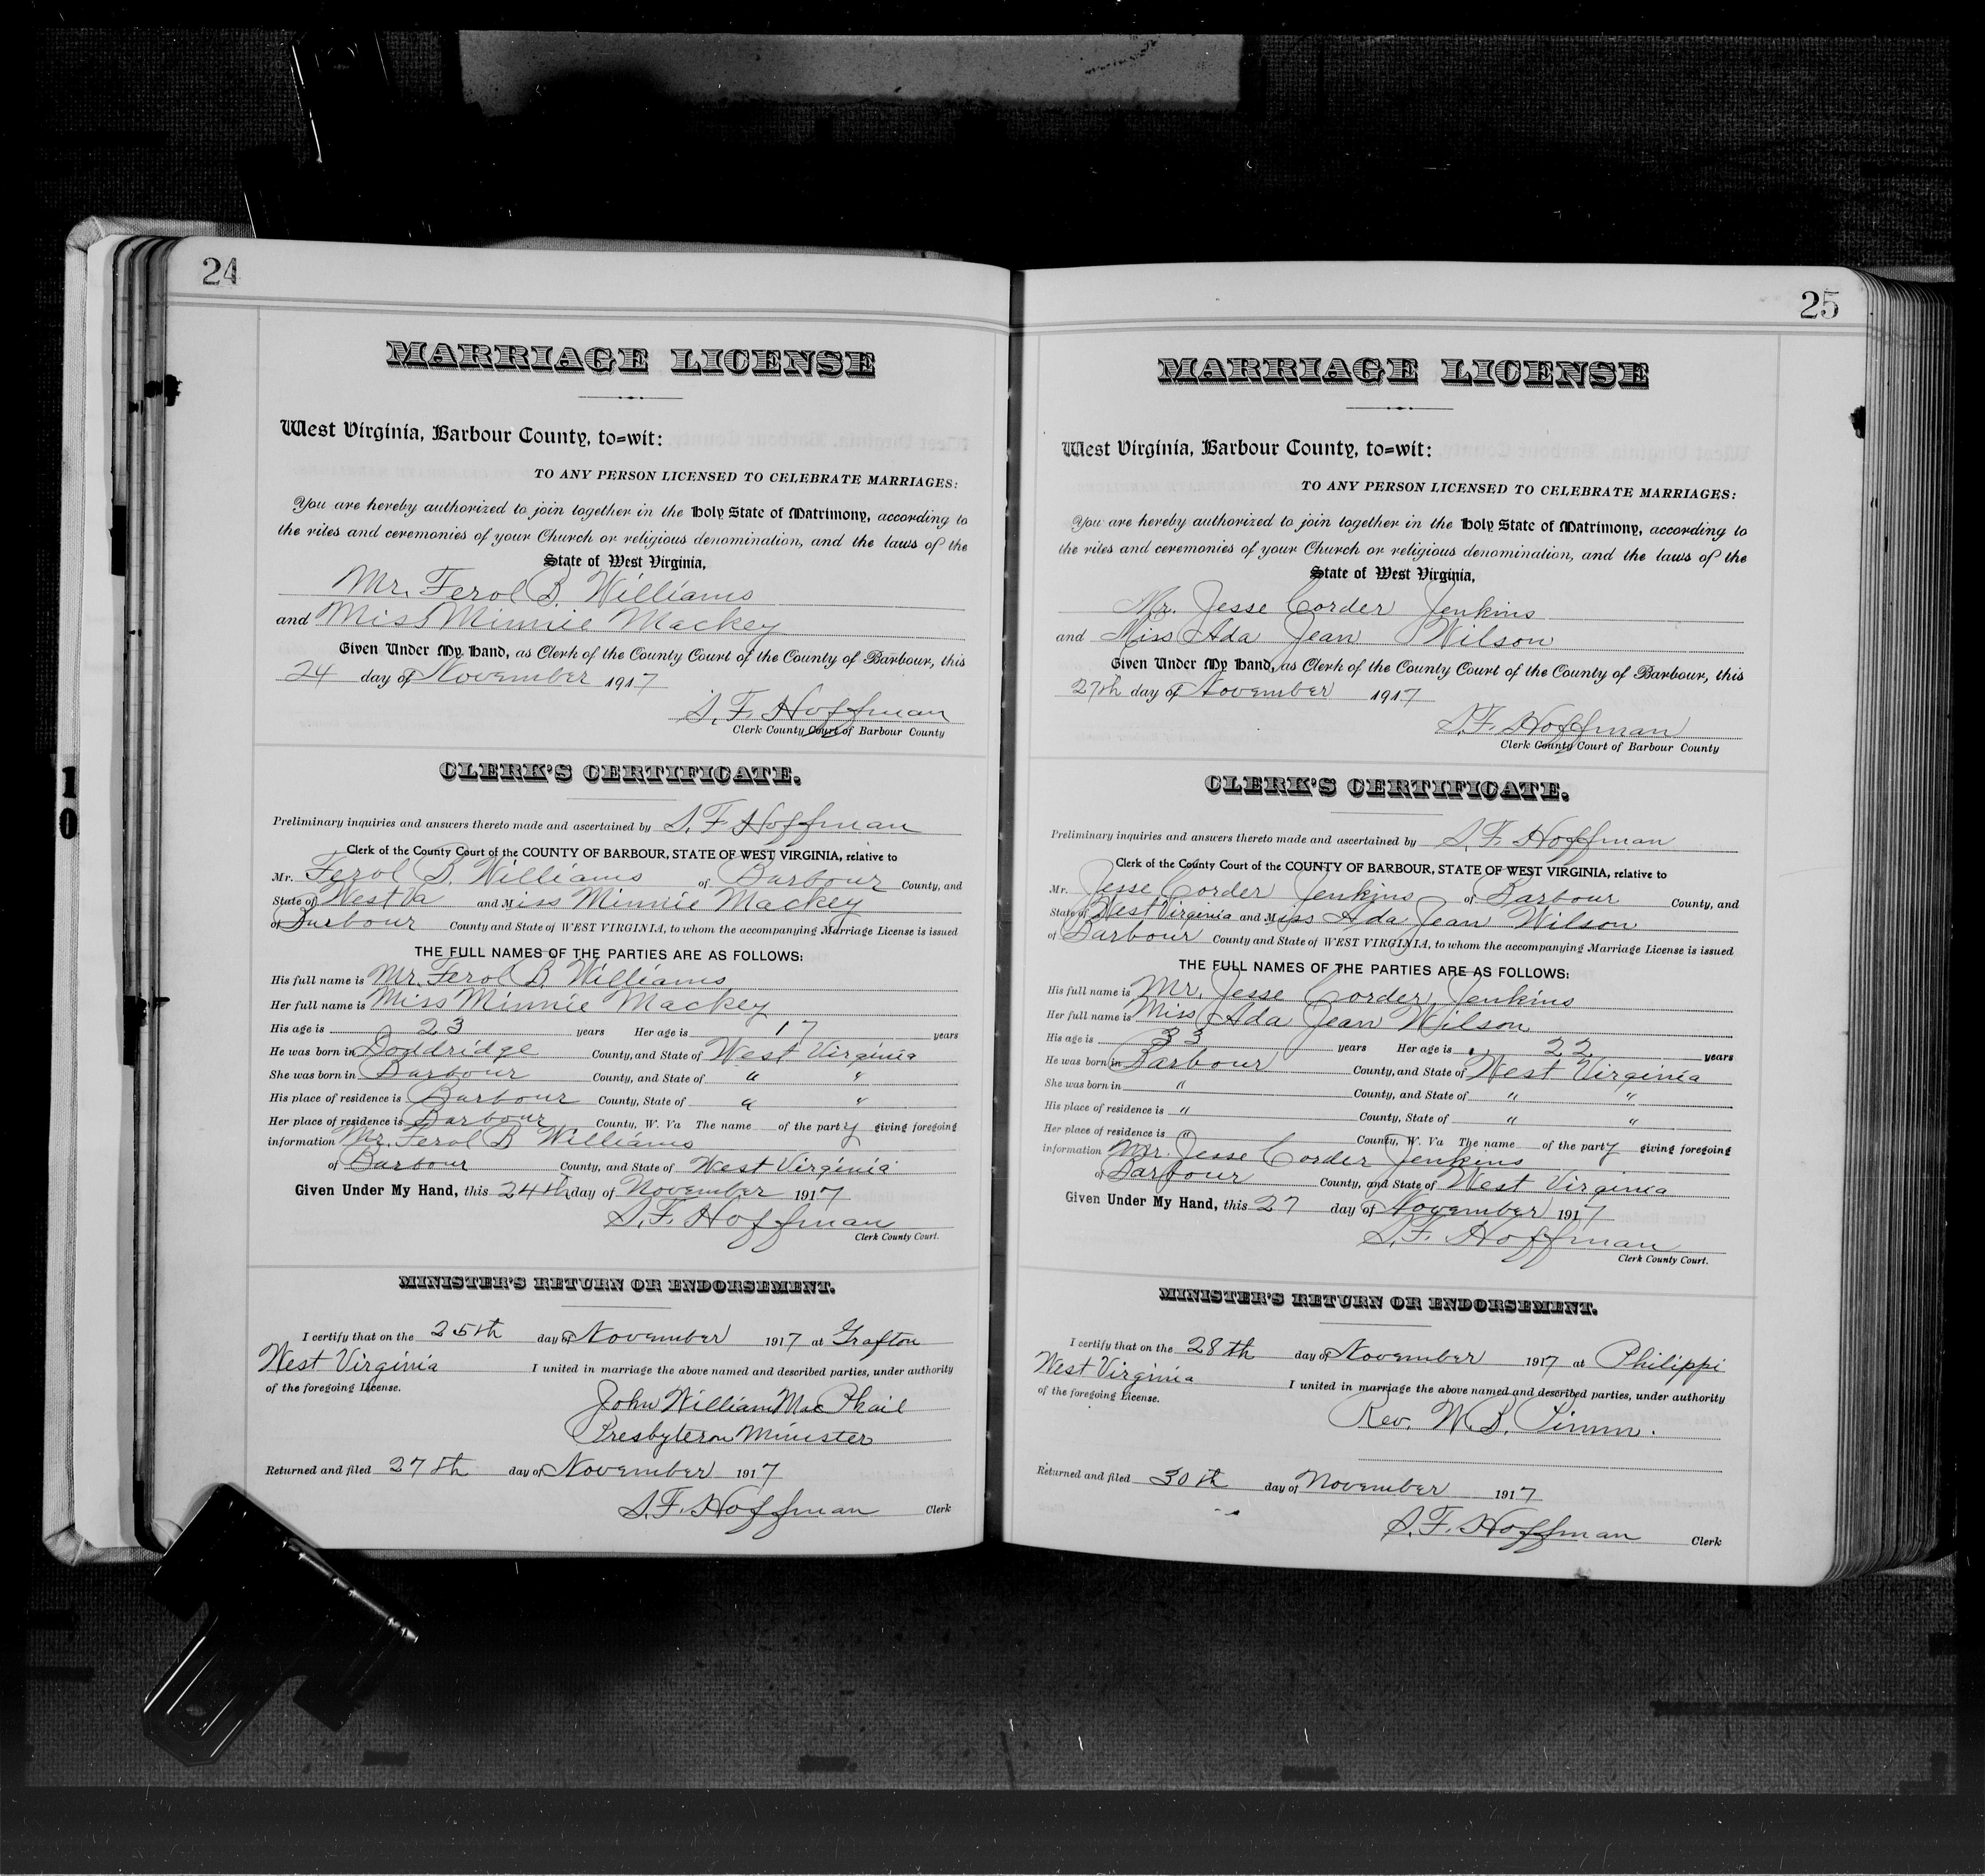 24
MARRIAGE LICENSE
West Virginia, Barbour County, to=wit:
TO ANY PERSON LICENSED TO CELEBRATE MARRIAGES:
You are hereby authorized to join together in the Holy State of Matrimony, according to
the rites and ceremonies of your Church or religious denomination, and the laws of the
State of West Virginia,
Mr. Ferol B. Williams
and Miss Minnie Mackey
Given Under My Hand, as Clerk of the County Court of the County of Barbour, this
24 day of November 1917
S. F. Hoffman
Clerk County Court of Barbour County
CLERK'S CERTIFICATE.
Preliminary inquiries and answers thereto made and ascertained by S. F. Hoffman
Clerk of the County Court of the COUNTY OF BARBOUR, STATE OF WEST VIRGINIA, relative to
Mr. Ferol B. Williams of Barbour County, and
State of West Va and Miss Minnie Mackey
of Barbour County and State of WEST VIRGINIA, to whom the accompanying Marriage License is issued
THE FULL NAMES OF THE PARTIES ARE AS FOLLOWS:
His full name is Mr. Ferol B. Williams
Her full name is Miss Minnie Mackey
His age is 23 years Her age is 17 years
He was born in Doddridge County, and State of West Virginia
She was born in Barbour County, and State of " "
His place of residence is Barbour County, State of " "
Her place of residence is Barbour County, W. Va The name of the party giving foregoing
information Mr. Ferol B Williams
of Barbour County, and State of West Virginia
Given Under My Hand, this 24th day of November 1917
S. F. Hoffman
Clerk County Court.
MINISTER'S RETURN OR ENDORSEMENT.
I certify that on the 25th day of November 1917 at Grafton
West Virginia I united in marriage the above named and described parties, under authority
of the foregoing License.
John William MacPhail
Presbyteran Minister
Returned and filed 27th day of November 1917
S. F. Hoffman Clerk
10
25
MARRIAGE LICENSE
West Virginia, Barbour County, to=wit:
TO ANY PERSON LICENSED TO CELEBRATE MARRIAGES:
You are hereby authorized to join together in the Holy State of Matrimony, according to
the rites and ceremonies of your Church or religious denomination, and the laws of the
State of West Virginia,
Mr. Jesse Corder Jenkins
and Miss Ada Jean Wilson
Given Under My Hand, as Clerk of the County Court of the County of Barbour, this
27th day of November 1917
S. F. Hoffman
Clerk County Court of Barbour County
CLERK'S CERTIFICATE.
Preliminary inquiries and answers thereto made and ascertained by S. F. Hoffman
Clerk of the County Court of the COUNTY OF BARBOUR, STATE OF WEST VIRGINIA, relative to
Mr. Jesse Corder Jenkins of Barbour County, and
State of West Virginia and Miss Ada Jean Wilson
of Barbour County and State of WEST VIRGINIA, to whom the accompanying Marriage License is issued
THE FULL NAMES OF THE PARTIES ARE AS FOLLOWS:
His full name is Mr. Jesse Corder Jenkins
Her full name is Miss Ada Jean Wilson
His age is 33 years Her age is 22 years
He was born in Barbour County, and State of West Virginia
She was born in " County, and State of " "
His place of residence is " County, State of " "
Her place of residence is " County, W. Va The name of the party giving foregoing
information Mr. Jesse Corder Jenkins
of Barbour County, and State of West Virginia
Given Under My Hand, this 27 day of November 1917
S. F. Hoffman
Clerk County Court.
MINISTER'S RETURN OR ENDORSEMENT.
I certify that on the 28th day of November 1917 at Philippi
West Virginia I united in marriage the above named and described parties, under authority
of the foregoing License.
Rev. W. B. Pimm.
Returned and filed 30th day of November 1917
S. F. Hoffman Clerk